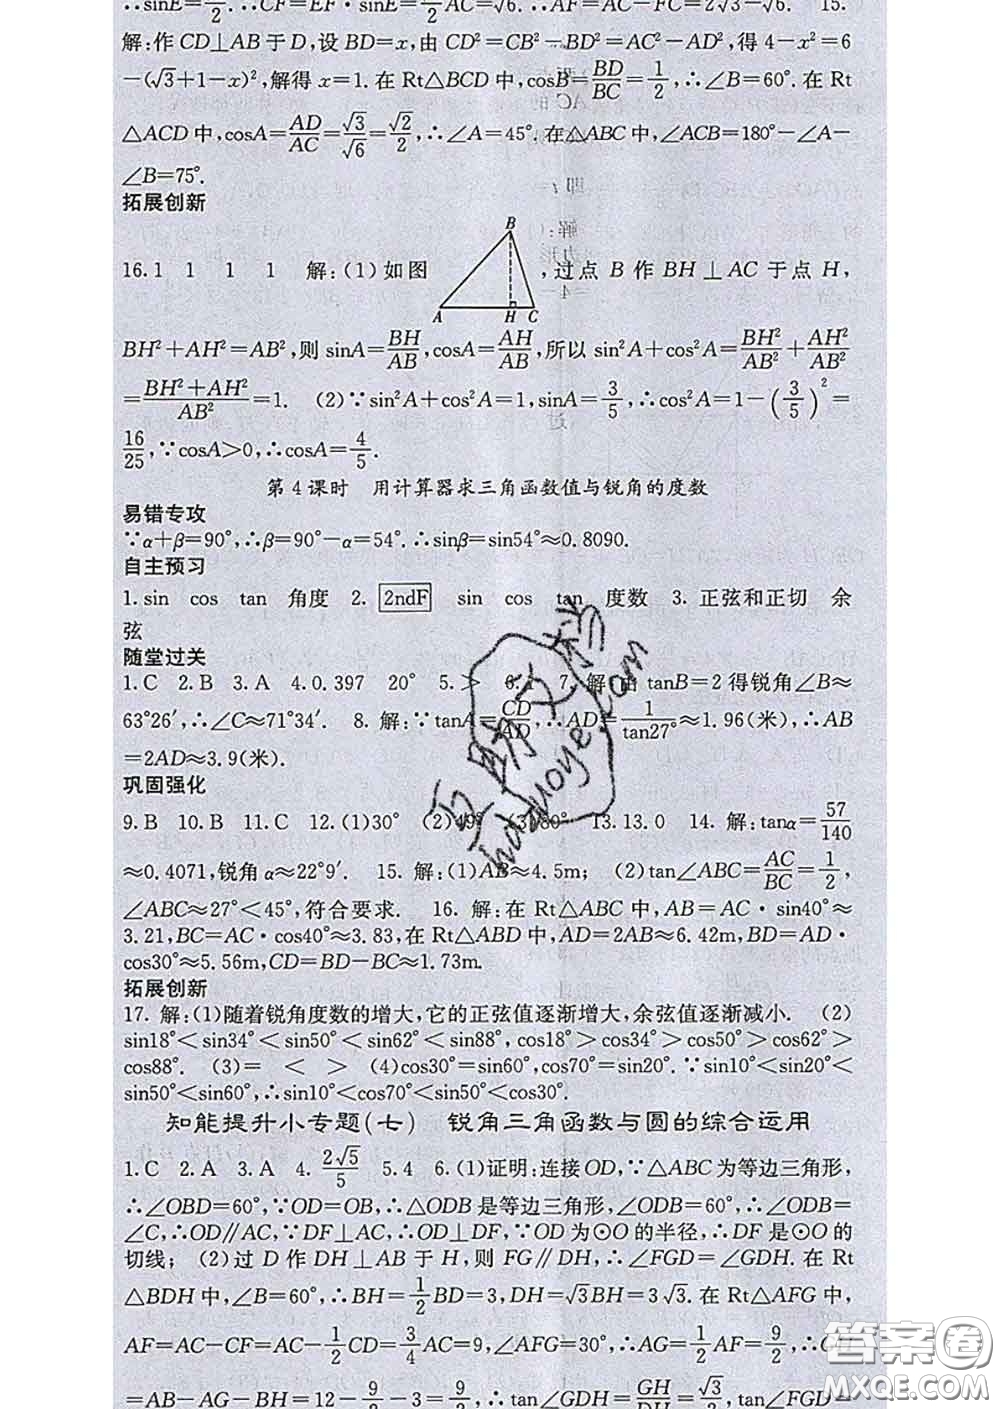 ∴sinE=—/2. ∴CF=EF·sinE=—/2 AC=√6. ∴AF=AC-FC=2√3-√6. 15.
解:作CD⊥AB于D,设BD=x,由CD²=CB²-BD²=AC²-AD²,得4-x²=6
-(√3+1-x)²,解得x=1. 在Rt△BCD中,cosB=BD/BC=1/2,∴∠B=60°. 在Rt
△ACD中,cosA=AD/AC=√3/√6=√2/2,∴∠A=45°. 在△ABC中,∠ACB=180°-∠A-
∠B=75°.
拓展创新
B
16.1 1 1 1 解:(1)如图 ,过点B作BH⊥AC于点H,
A H C
BH²+AH²=AB²,则sinA=BH/AB,cosA=AH/AB,所以sin²A+cos²A=BH²/AB²+AH²/AB²
=(BH²+AH²)/AB²=1. (2)∵sin²A+cos²A=1,sinA=3/5,∴cos²A=1-(3/5)²=
16/25,∵cosA>0,∴cosA=4/5.
第4课时 用计算器求三角函数值与锐角的度数
易错专攻
∵α+β=90°,∴β=90°-α=54°. ∴sinβ=sin54°≈0.8090.
自主预习
1.sin cos tan 角度 2. 2ndF sin cos tan 度数 3. 正弦和正切 余
弦
随堂过关
1.C 2.B 3.A 4.0.397 20° 5.> 7. 解:由tanB=2得锐角∠B≈
63°26′,∴∠C≈71°34′. 8. 解:∵tanA=CD/AD,∴AD=1/tan27°≈1.96(米),∴AB
=2AD≈3.9(米).
巩固强化
9.B 10.B 11.C 12.(1)30° (2)49° (3)80° 13.13.0 14. 解:tanα=57/140
≈0.4071,锐角α≈22°9′. 15. 解:(1)AB≈4.5m; (2)tan∠ABC=AC/BC=1/2,
∠ABC≈27°<45°,符合要求. 16. 解:在Rt△ABC中,AB=AC·sin40°≈
3.21,BC=AC·cos40°≈3.83,在Rt△ABD中,AD=2AB≈6.42m,BD=AD·
cos30°≈5.56m,CD=BD-BC≈1.73m.
拓展创新
17. 解:(1)随着锐角度数的增大,它的正弦值逐渐增大,余弦值逐渐减小. (2)
sin18°<sin34°<sin50°<sin62°<sin88°,cos18°>cos34°>cos50°>cos62°>
cos88°. (3)= < > (4)cos30°=sin60°,cos70°=sin20°. ∵sin10°<sin20°<
sin50°<sin60°,∴sin10°<cos70°<sin50°<cos30°.
知能提升小专题(七) 锐角三角函数与圆的综合运用
1.C 2.A 3.A 4. 2√5/5 5.4 6.(1)证明:连接OD,∵△ABC为等边三角形,
∴∠OBD=60°,∵OD=OB,∴△ODB是等边三角形,∠ODB=60°,∴∠ODB=
∠C,∴OD∥AC,∵DF⊥AC,∴OD⊥DF,∵OD为⊙O的半径,∴DF是⊙O的
切线; (2)过D作DH⊥AB于H,则FG∥DH,∴∠FGD=∠GDH. 在Rt
△BDH中,∠B=60°,∴BH=1/2BD=3,DH=√3BH=3√3. 在Rt△AFG中,
AF=AC-CF=AC-1/2CD=3/4AC=9,∠AFG=30°,∴AG=1/2AF=9/2,∴GH
=AB-AG-BH=12-9/2-3=9/2,∴tan∠GDH=GH/DH=√3/2,tan∠FGD=
答案圈
MXQE.COM